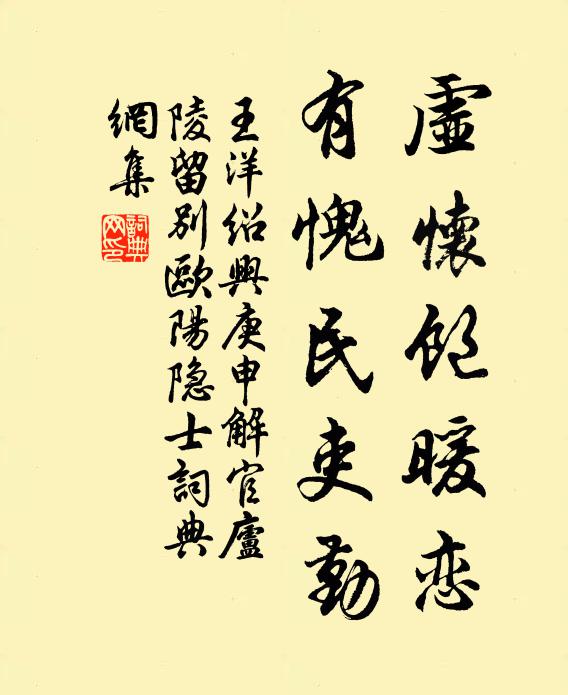 虛懷飽暖恋
有愧民吏勤
王洋紹興庚申解官廬
陵留別歐陽隐士詞典
網集
詞典网印